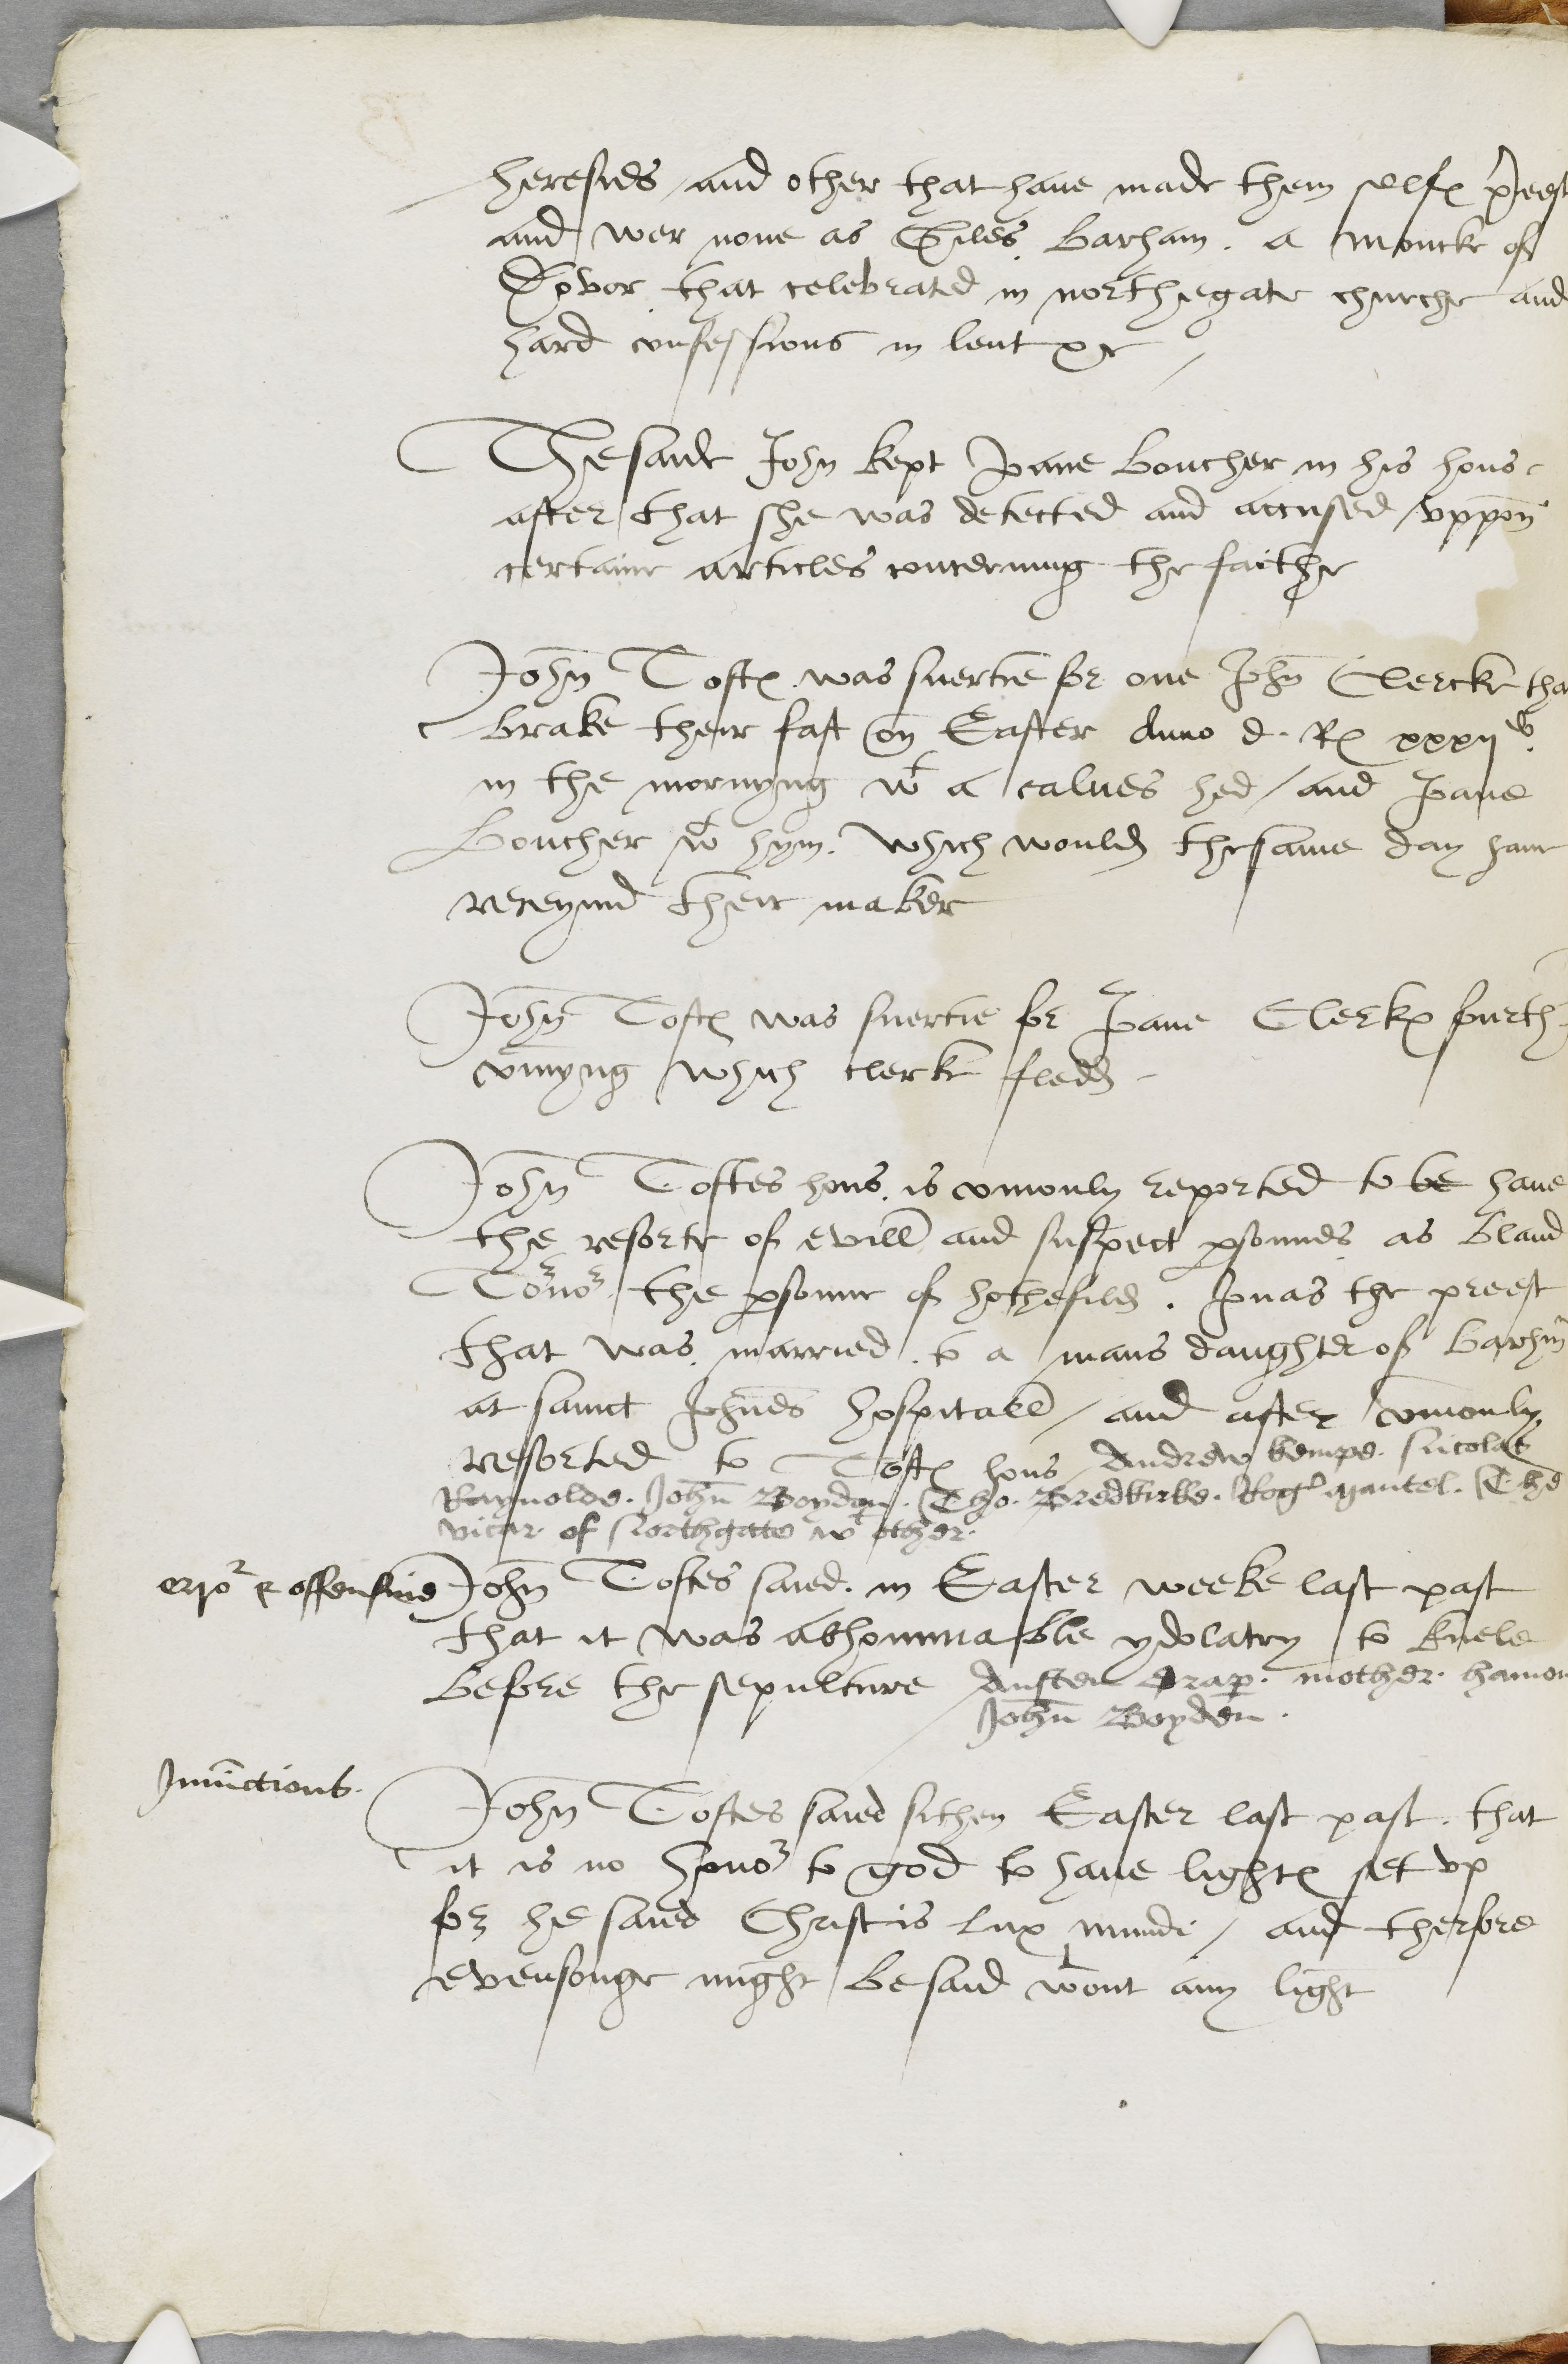 heresies / and other that have made them selfes preest
and wer none as Giles Barham . a Moncke of
Dovor that celebrated in northegate churche and
hard confessions in lent &c /
The saide John kept Joane Boucher in his hous
after that she was detected and accused / vppon
certaine articles concerning the faithe
John Toftes was suertie for one John Clercke tha
brake their fast on Easter Anno d. R xxxijº
in the mornyng wt a calues hed / and Joane
Boucher wt hym. which would the same day haue
receyuid their maker
John Toftes was suertie for Joane Clerkes fourth
comyng which clerke fledd
John Toftes hous is comonly reported to be have
the resorte of evill and suspect psonnes as Bland
Tornor the psonne of hothefild . Jonas the preest
that was married to a mans daughter of Barhm
at sainct Johnes hospitall / and after comonly
resorted to Toftes hous Andrew kempe. Nicolas
Raynolde. John Boyden. Tho. Bredkirke. Rogr mantel. The
vicar of Northgate wt other.
erro & offensive
John Toftes saied in Easter weeke last past
that it was abhominable ydolatry to knele
before the sepulture Austen Drap. mother hamon
John Boyden.
Iniunctions.
John Toftes saied sithen Easter last past . that
it is no honor to god to haue lightes set vp
for he saied Christ is lux mundi / and therfore
evensonge might be said wtout any light